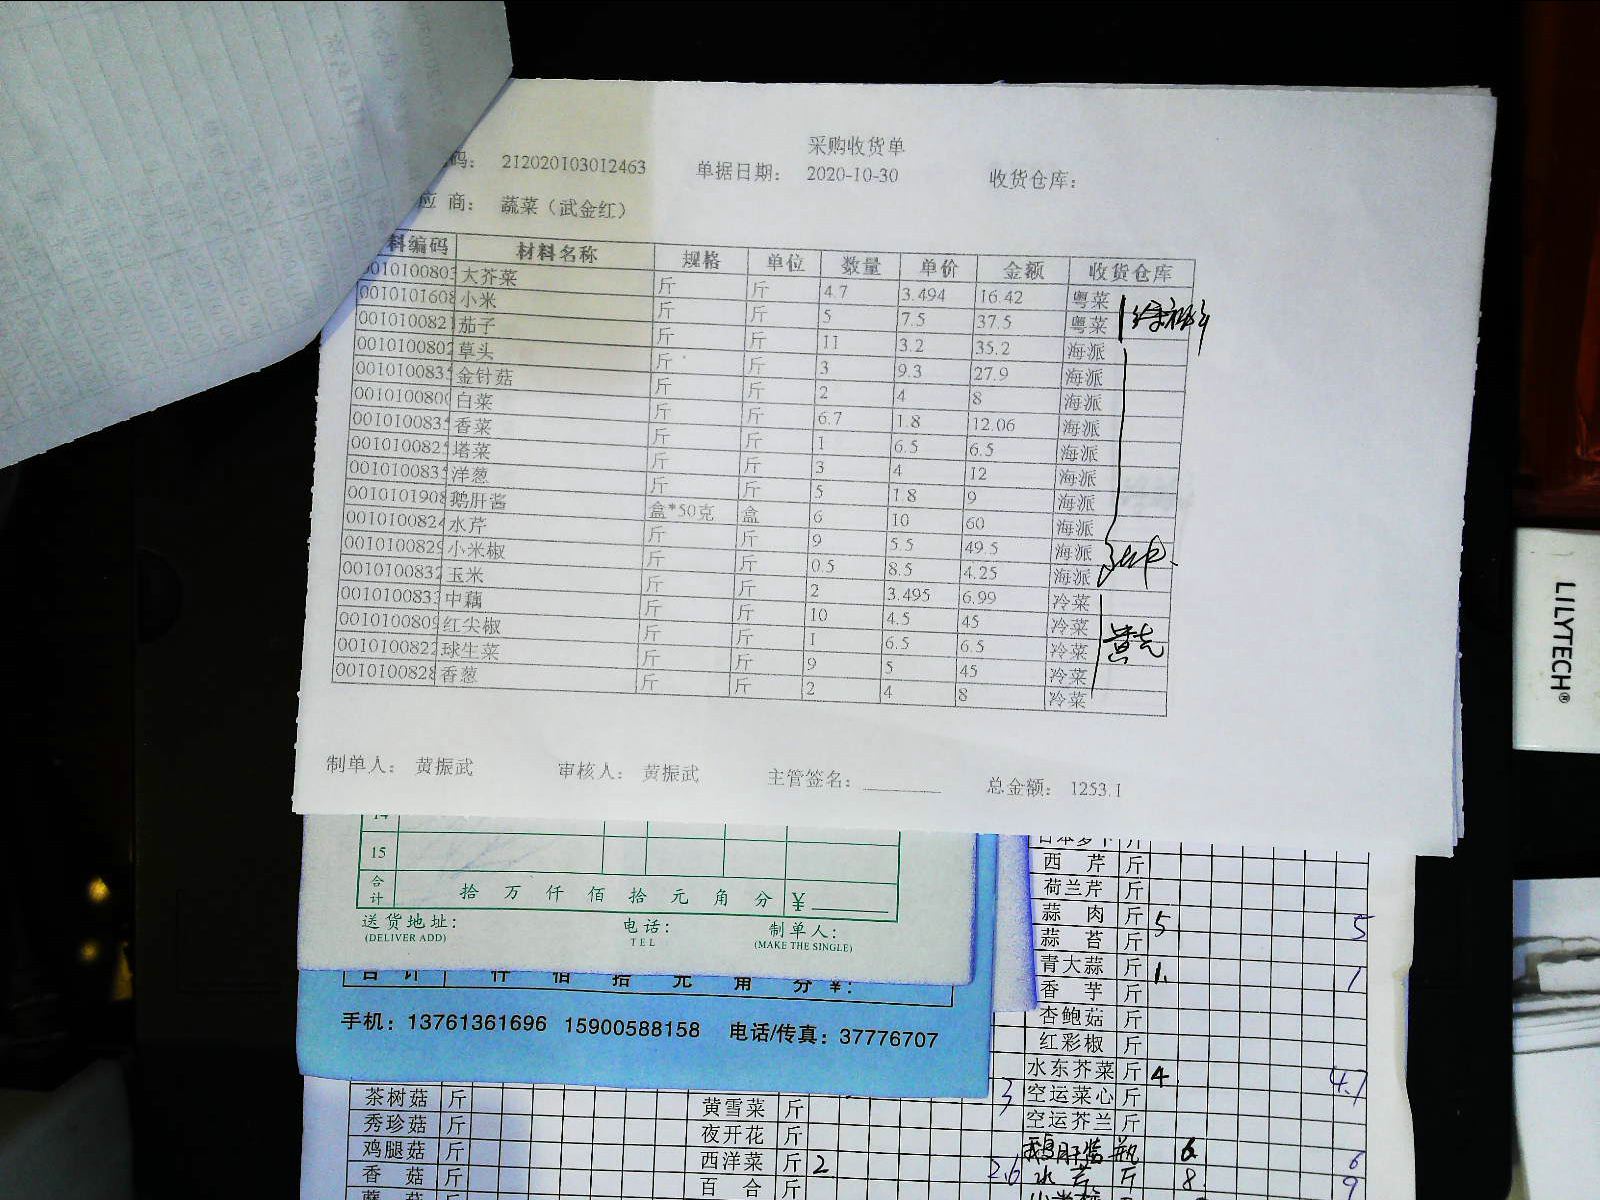 采购收货单
码: 212020103012463 单据日期: 2020-10-30 收货仓库:
应 商: 蔬菜（武金红）
料编码 材料名称 规格 单位 数量 单价 金额 收货仓库
0010100803 大芥菜 斤 斤 4.7 3.494 16.42 粤菜
0010101608 小米 斤 斤 5 7.5 37.5 粤菜
001010082 茄子 斤 斤 11 3.2 35.2 海派
0010100802 草头 斤 斤 3 9.3 27.9 海派
001010083 金针菇 斤 斤 2 4 8 海派
001010080 白菜 斤 斤 6.7 1.8 12.06 海派
001010083 香菜 斤 斤 1 6.5 6.5 海派
001010082 塔菜 斤 斤 3 4 12 海派
001010083 洋葱 斤 斤 5 1.8 9 海派
0010101908 鹅肝酱 盒*50克 盒 6 10 60 海派
001010082 水芹 斤 斤 9 5.5 49.5 海派
0010100829 小米椒 斤 斤 0.5 8.5 4.25 海派
0010100832 玉米 斤 斤 2 3.495 6.99 冷菜
0010100833 中藕 斤 斤 10 4.5 45 冷菜
0010100809 红尖椒 斤 斤 1 6.5 6.5 冷菜
0010100822 球生菜 斤 斤 9 5 45 冷菜
0010100828 香葱 斤 斤 2 4 8 冷菜
制单人: 黄振武 审核人: 黄振武 主管签名: 总金额: 1253.1
14
15
合计 拾 万 仟 佰 拾 元 角 分 ¥
送货地址: 电话: 制单人:
(DELIVER ADD) TEL (MAKE THE SINGLE)
合 计 仟 佰 拾 元 角 分 ¥:
手机: 13761361696 15900588158 电话/传真: 37776707
日本萝卜 斤
西 芹 斤
荷兰芹 斤
蒜 肉 斤 5 5
蒜 苔 斤
青大蒜 斤 1. 1
香 芋 斤
杏鲍菇 斤
红彩椒 斤
水东芥菜 斤 4 4.7
空运菜心 斤
空运芥兰 斤
鹅肝酱 瓶 6 6
水芹 斤 8 9
茶树菇 斤 黄雪菜 斤 3
秀珍菇 斤 夜开花 斤
鸡腿菇 斤 西洋菜 斤 2 2.6
香 菇 斤 百 合 斤
LILYTECH®